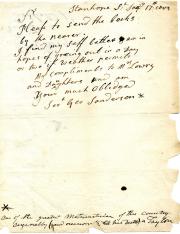 Stanhope St Sepr 17
Sr
Pleas to send the books
by the bearer
I find my self better am in
hopes of going out in a Day
or two if wether permits
My Compliments to Mrs Lowry
and Daughters and am
Your much Obliged
Servt Geo Sanderson *
* One of the greatest Mathematicians of this Country